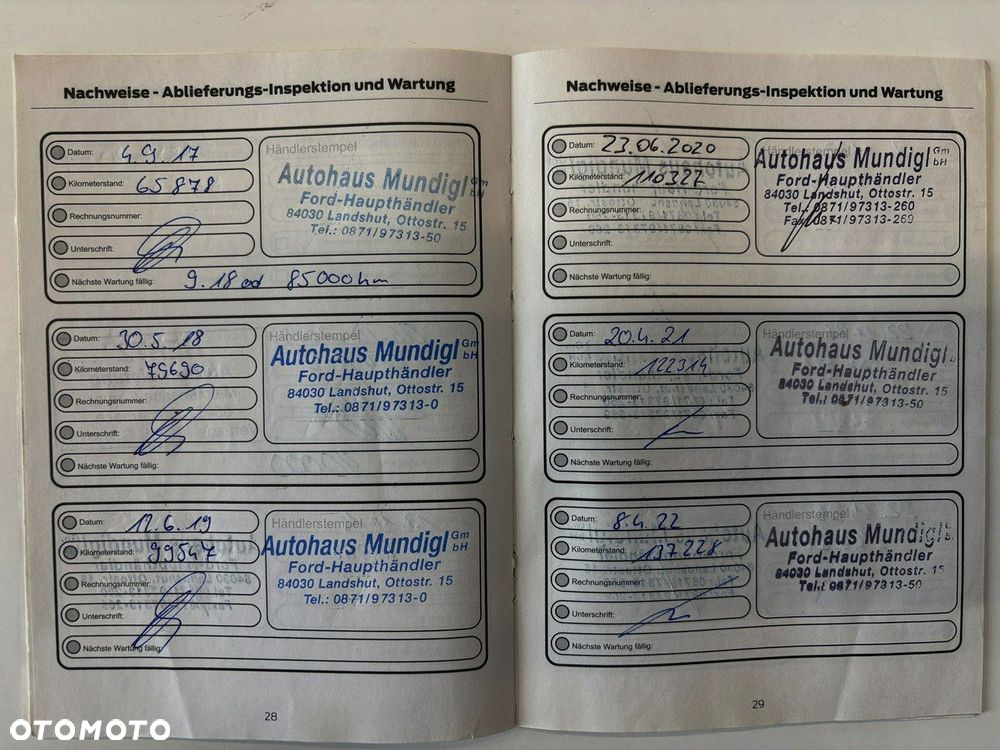 Nachweise - Ablieferungs-Inspektion und Wartung
Datum: 4.9.17
Kilometerstand: 65878
Rechnungsnummer:
Unterschrift:
Nächste Wartung fällig: 9.18 od 85000 km
Händlerstempel
Autohaus Mundigl GmbH
Ford-Haupthändler
84030 Landshut, Ottostr. 15
Tel.: 0871/97313-50
Datum: 30.5.18
Kilometerstand: 79690
Rechnungsnummer:
Unterschrift:
Nächste Wartung fällig:
Händlerstempel
Autohaus Mundigl GmbH
Ford-Haupthändler
84030 Landshut, Ottostr. 15
Tel.: 0871/97313-0
Datum: 12.6.19
Kilometerstand: 99547
Rechnungsnummer:
Unterschrift:
Nächste Wartung fällig:
Händlerstempel
Autohaus Mundigl GmbH
Ford-Haupthändler
84030 Landshut, Ottostr. 15
Tel.: 0871/97313-0
28
Nachweise - Ablieferungs-Inspektion und Wartung
Datum: 23.06.2020
Kilometerstand: 110327
Rechnungsnummer:
Unterschrift:
Nächste Wartung fällig:
Händlerstempel
Autohaus Mundigl GmbH
Ford-Haupthändler
84030 Landshut, Ottostr. 15
Tel. 0871/97313-260
Fax 0871/97313-269
Datum: 20.4.21
Kilometerstand: 122314
Rechnungsnummer:
Unterschrift:
Nächste Wartung fällig:
Händlerstempel
Autohaus Mundigl
Ford-Haupthändler
84030 Landshut, Ottostr. 15
Tel.: 0871/97313-50
Datum: 8.4.22
Kilometerstand: 137228
Rechnungsnummer:
Unterschrift:
Nächste Wartung fällig:
Händlerstempel
Autohaus Mundigl
Ford-Haupthändler
84030 Landshut, Ottostr. 15
Tel.: 0871/97313-50
29
OTOMOTO